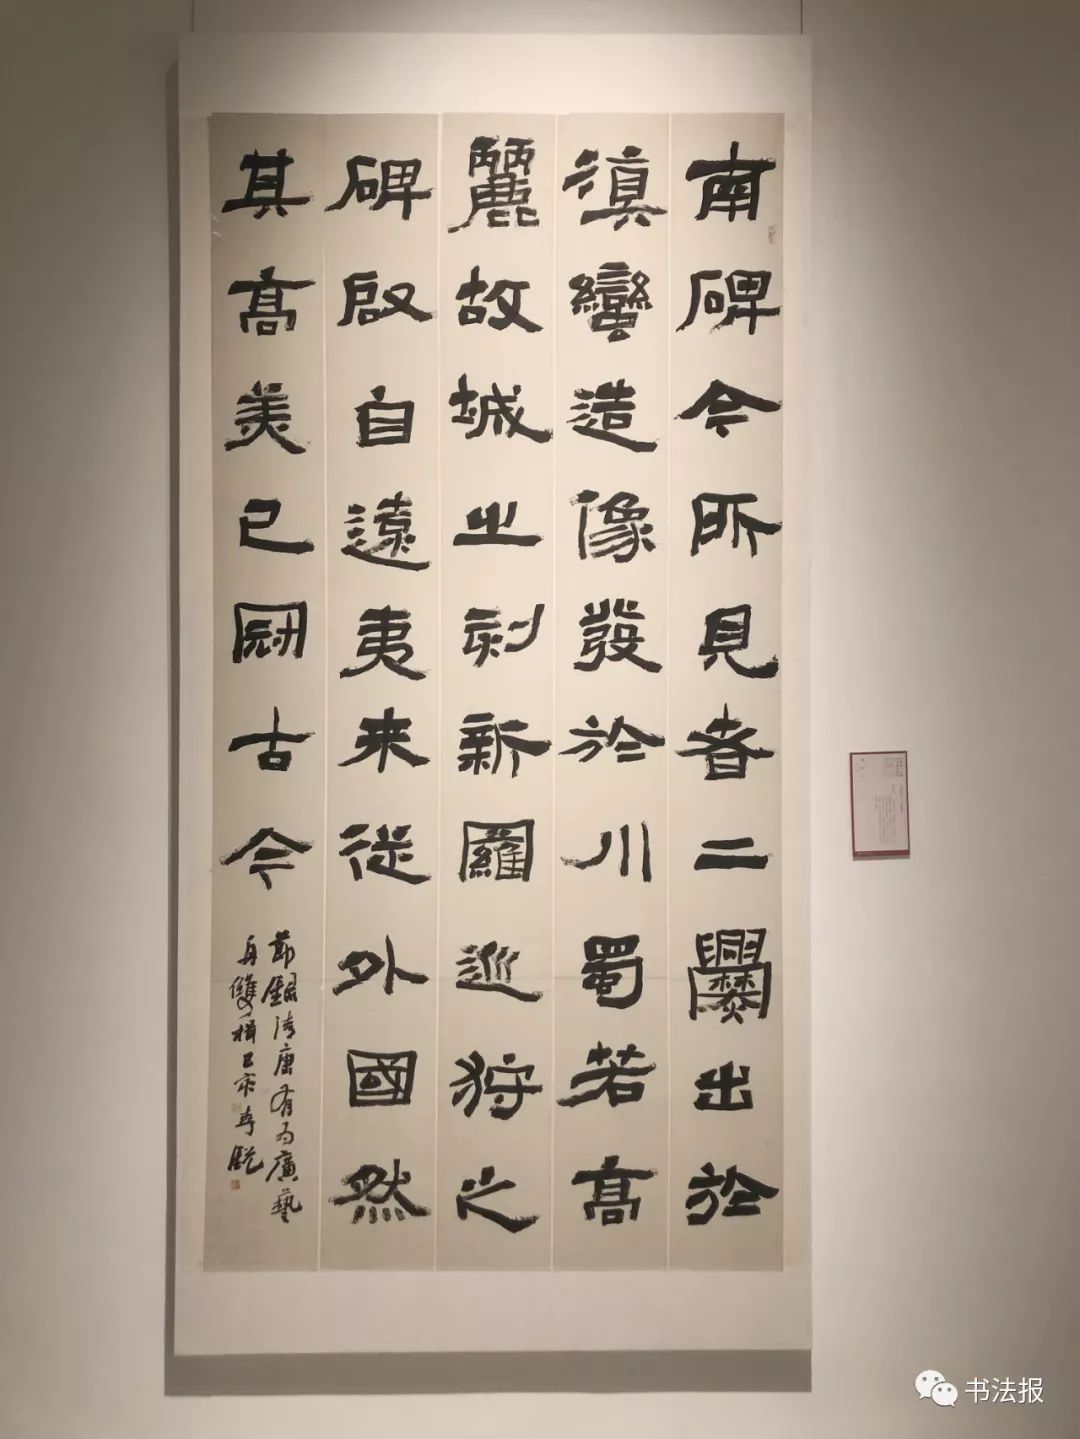 南碑今所見者二爨出於
滇蠻造像發於川蜀若髙
麗故城之刻新羅巡狩之
碑啟自遠夷来從外國然
其髙美已冠古今
節錄清康有为廣藝
舟雙楫己亥春
书法报